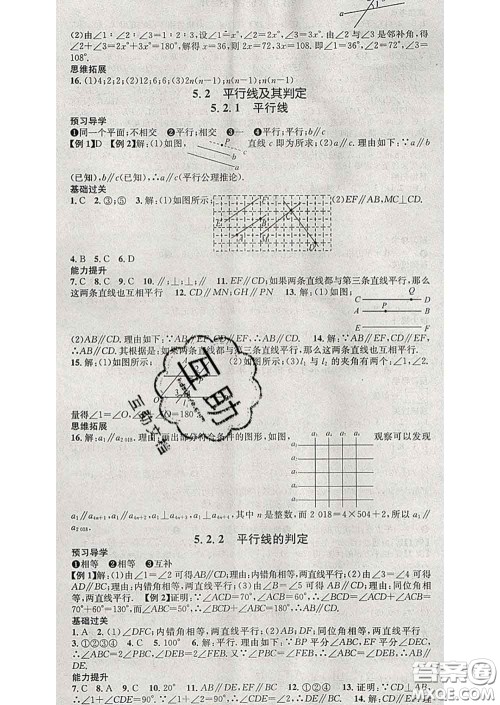 a
(2)由∠1∶∠2∶∠3=1∶2∶2,设∠1=x°,∠2=2x°,∠3=2x°.由∠2与∠3是邻补角,得
∠2+∠3=2x°+3x°=180°,解得x=36,则2x=72,3x=108.所以∠1=36°,∠2=72°,∠3=
108°.
思维拓展
16.(1)4;2;2;(2)12;6;6;(3)2n(n-1);n(n-1);n(n-1)
5.2 平行线及其判定
5.2.1 平行线
预习导学
❶同一个平面;不相交 ❷平行;相交 ❸一 ❹平行;平行;b∥c
【例1】D 【例2】解:(1)如图, 直线c即为所求;(2)a∥c.理由如下:∵a∥b
P
b
a
(已知),b∥c(已知),∴a∥c(平行公理推论).
基础过关
1.C 2.③;⑤ 3.解:(1)如图所示: (2)EF∥AB,MC⊥CD.
4.B 5.C 6.D
能力提升
7.C 8.C 9.C 10.∥;⊥;∥;⊥ 11.EF∥CD;如果两条直线都与第三条直线平行,那么
这两条直线也互相平行 12.CD∥MN;GH∥PN 13.解:(1)如图,
C Q D
A P B
E F
(2)AB∥CD.理由如下:∵AB∥EF,CD∥EF,∴AB∥CD. 14.解:∵AB∥EF,CD∥EF,∴AB
∥CD.其根据是:如果两条直线都与第三条直线平行,那么这两条直线也互相平行.
15.解:(1)如图所示: (2)如图所示: (3)l₁与l₂的夹角有两个;∠1,∠2.
量得∠1=∠O,∠2+∠O=180°.
思维拓展
16.解:a₁∥a₂₀₁₈.理由:画出部分符合条件的图形,如图, 观察可以发现
a₁
a₁∥a₄ₙ,a₁∥a₄ₙ₊₁,a₁⊥a₄ₙ₊₂,a₁⊥a₄ₙ₊₃,其中n是整数,而2 018=4×504+2,所以a₁⊥
a₂₀₁₈.
5.2.2 平行线的判定
预习导学
❶相等 ❷相等 ❸互补
【例1】解:(1)由∠1=∠2可得AB∥CD;理由:内错角相等,两直线平行.(2)由∠3=∠4可得
AD∥BC;理由:内错角相等,两直线平行.(3)由∠B=∠5可得AB∥CD;理由:同位角相等,
两直线平行. 【例2】证明:∵∠2=70°,∠1=60°,又∵∠ACD=∠1+∠2,∴∠ACD=∠2+∠1
=70°+60°=130°,而∠BAC=50°,∴∠BAC+∠ACD=50°+130°=180°,∴AB∥CD.
基础过关
1.A 2.(1)∠DFC;内错角相等,两直线平行;(2)∠DFC;AB;DE;同位角相等,两直线平行.
3.①②③④ 4.C 5.D 6.解:AB∥DE.理由如下:∵BP平分∠ABC,EF平分∠DEC,
∴∠ABC=2∠PBC,∠DEC=2∠FEC.又∵∠PBC=∠FEC,∴∠ABC=∠DEC,∴AB∥
DE.
能力提升
7.C 8.A 9.C 10.20° 11.①③④ 12.①②③④ 13.证明:∵CE⊥CD,∴∠DCE
互助
互助文档
答案